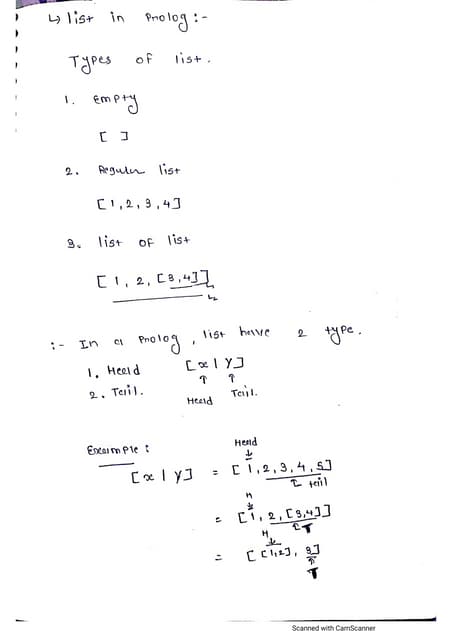 ↳ list in Prolog :-
Types of list.
1. Empty
[ ]
2. Reguler list
[1,2,3,4]
3. list of list
[1, 2, [3,4]]
:- In a Prolog, list have 2 type.
1. Head [x|Y]
2. Tail. ↑ ↑
Head Tail.
Example : Head
[x|Y] = [1,2,3,4,5]
tail
H
= [1, 2, [3,4]]
H T
= [[1,2], 3]
T
Scanned with CamScanner